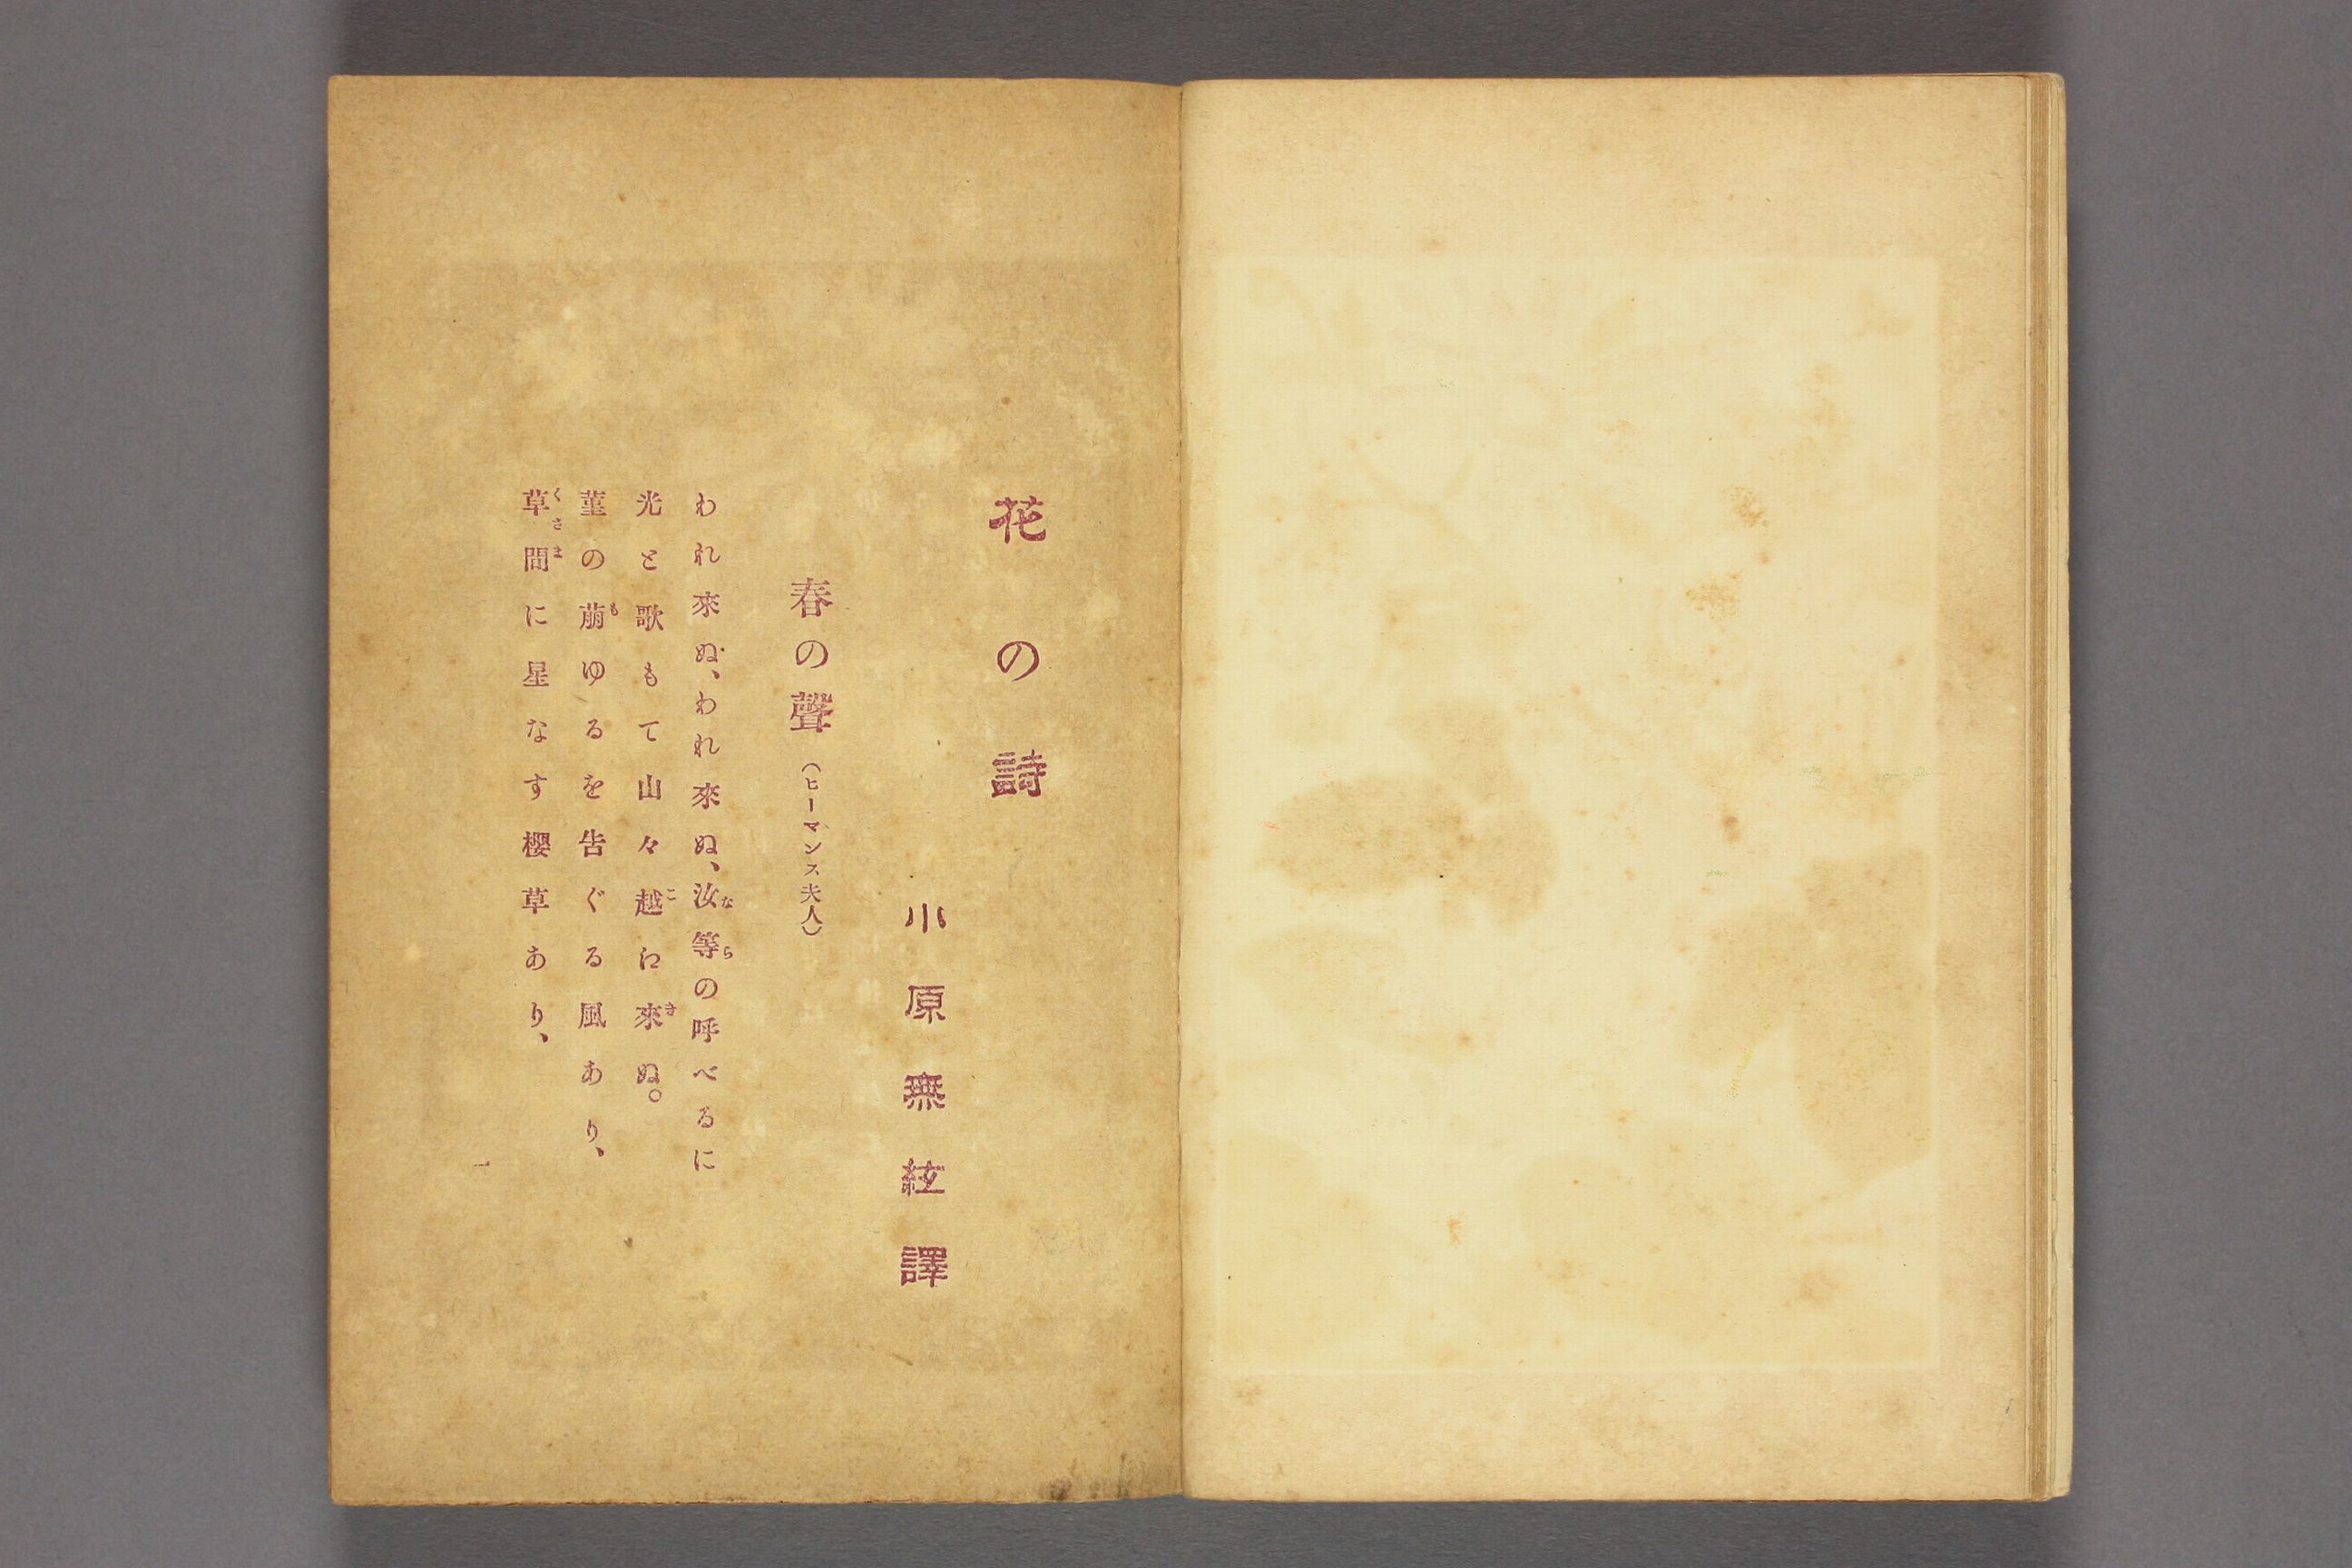 花の詩
小原無絃譯
春の聲(ヒーマンス夫人)
われ來ぬ、われ來ぬ、汝等の呼べるに
光と歌もて山々越え來ぬ。
菫の萠ゆるを告ぐる風あり、
草間に星なす櫻草あり、
一